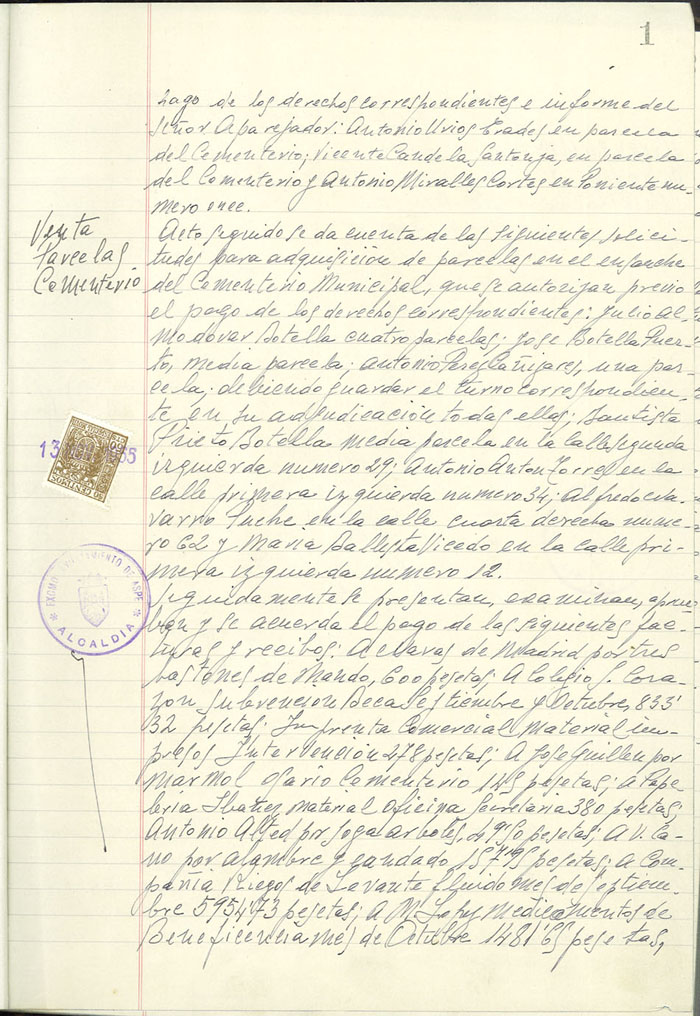 1
pago de los derechos correspondientes e informe del
señor Aparejador: Antonio Urios Erades en parcela
del Cementerio; Vicente Candela Santonja, en parcela
del Cementerio y Antonio Miralles Cortes en Poniente nu-
mero once.
Venta
Parcelas
Cementerio
Acto seguido se da cuenta de las siguientes solici-
tudes para adquisicion de parcelas en el ensanche
del Cementerio Municipal, que se autorizan previo
el pago de los derechos correspondientes: Julio Al-
modovar Botella cuatro parcelas; Jose Botella Puer-
to, media parcela; Antonio Perez Cañizares, una par-
cela, debiendo guardar el turno correspondien-
te en su adjudicación todas ellas; Bautista
Prieto Botella media parcela en la calle segunda
izquierda numero 29; Antonio Anton Torres en la
calle primera izquierda numero 34; Alfredo Na-
varro Puche en la calle cuarta derecha nume-
ro 62 y Maria Ballesta Vicedo en la calle pri-
mera izquierda numero 12.
Seguidamente se presentan, examinan, aprue-
ban y se acuerda el pago de las siguientes fac-
turas y recibos: A de Madrid por tres
bastones de Mando, 600 pesetas; A Colegio S. Cora-
zon subvencion Beca Septiembre y Octubre, 833'
32 pesetas; Imprenta Comercial Material im-
presos Intervención 278 pesetas; A Jose Guillen por
marmol Osario Cementerio 145 pesetas; a Pape-
leria Ibañez material Oficina Secretaria 380 pesetas;
Antonio por soga arboles, pesetas; A V. Ca-
no por alambre y candado pesetas; a Com-
pañia Riegos de Levante fluido mes de Septiem-
bre 5954'73 pesetas; A M. Medicamentos de
Beneficencia mes de Octubre 1481'65 pesetas,
13
EXCMO. AYUNTAMIENTO DE ASPE
ALCALDIA